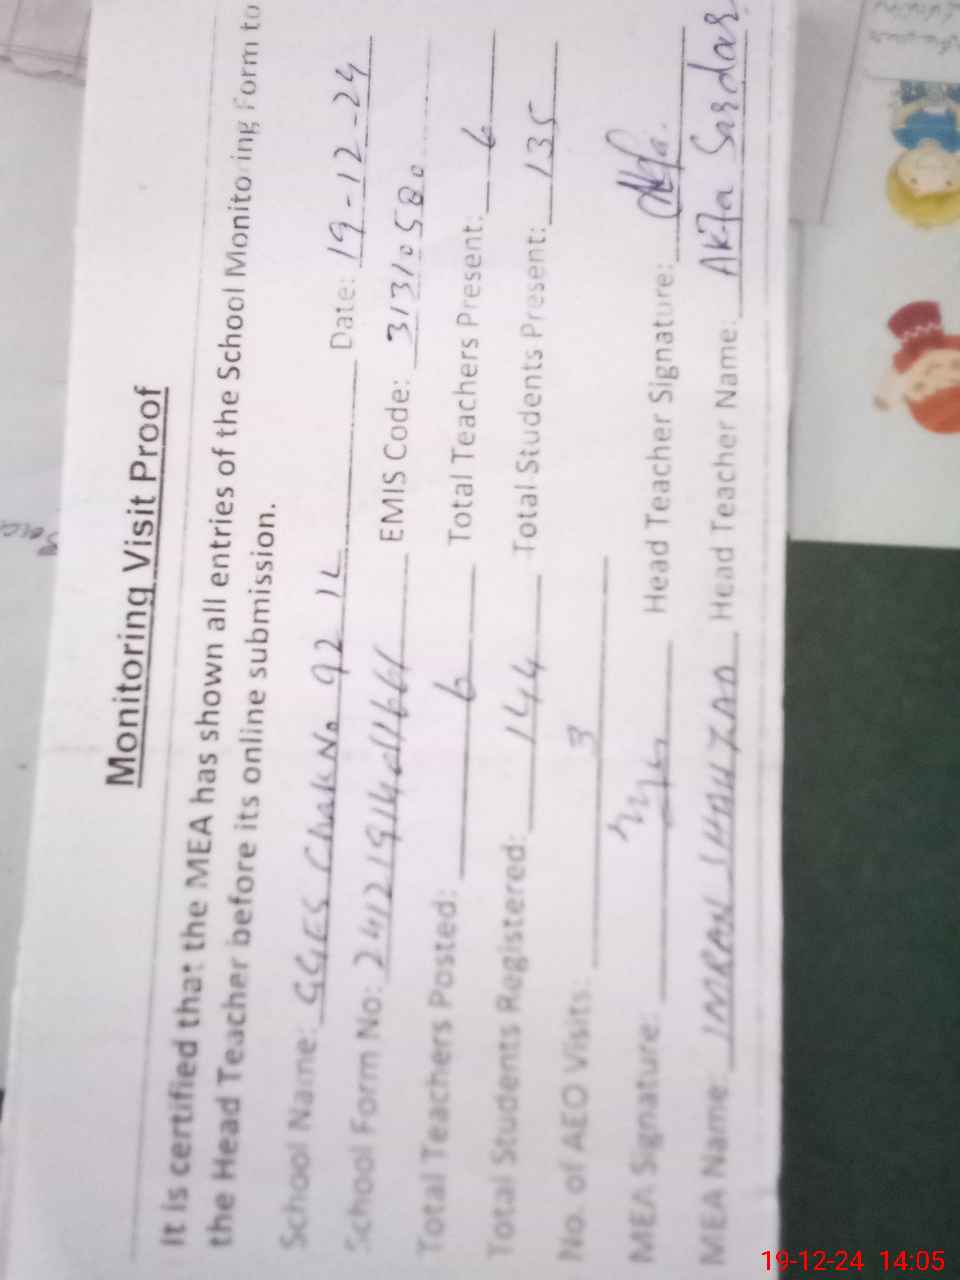 Monitoring Visit Proof
It is certified that the MEA has shown all entries of the School Monitoring Form to
the Head Teacher before its online submission.
School Name: GGES Chak No 92 1L Date: 19-12-24
School Form No: EMIS Code: 31310580
Total Teachers Posted: 6 Total Teachers Present: 6
Total Students Registered: 144 Total Students Present: 135
No. of AEO Visits: 3
MEA Signature: Head Teacher Signature:
MEA Name: IMRAN SHAHZAD Head Teacher Name: Sardar
19-12-24 14:05